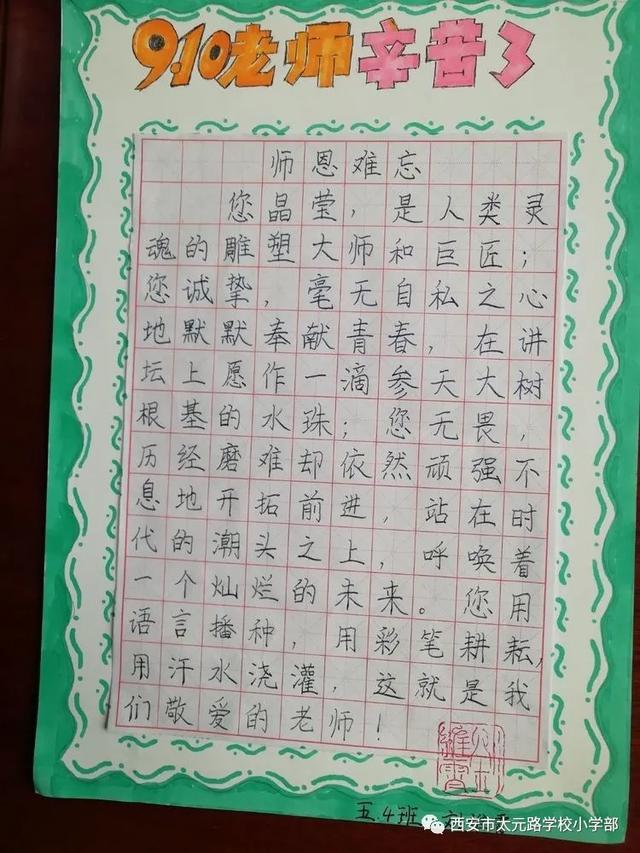 9.10老师辛苦了
师恩难忘
您晶莹，是人类灵
魂的雕塑大师和巨匠；
您诚挚，毫无自私之心
地默默奉献青春，在讲
坛上愿作一滴参天大树
根基的水珠；您无畏，
历经磨难却依然顽强不
息地开拓前进，站在时
代的潮头之上，呼唤着
一个灿烂的未来。您用
语言播种，用彩笔耕耘，
用汗水浇灌，这就是我
们敬爱的老师！
五.4班
西安市太元路学校小学部